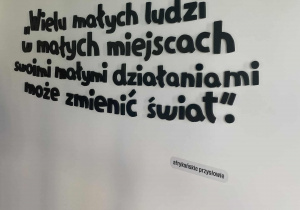 „Wielu małych ludzi
w małych miejscach
swoimi małymi działaniami
może zmienić świat".
afrykańskie przysłowie